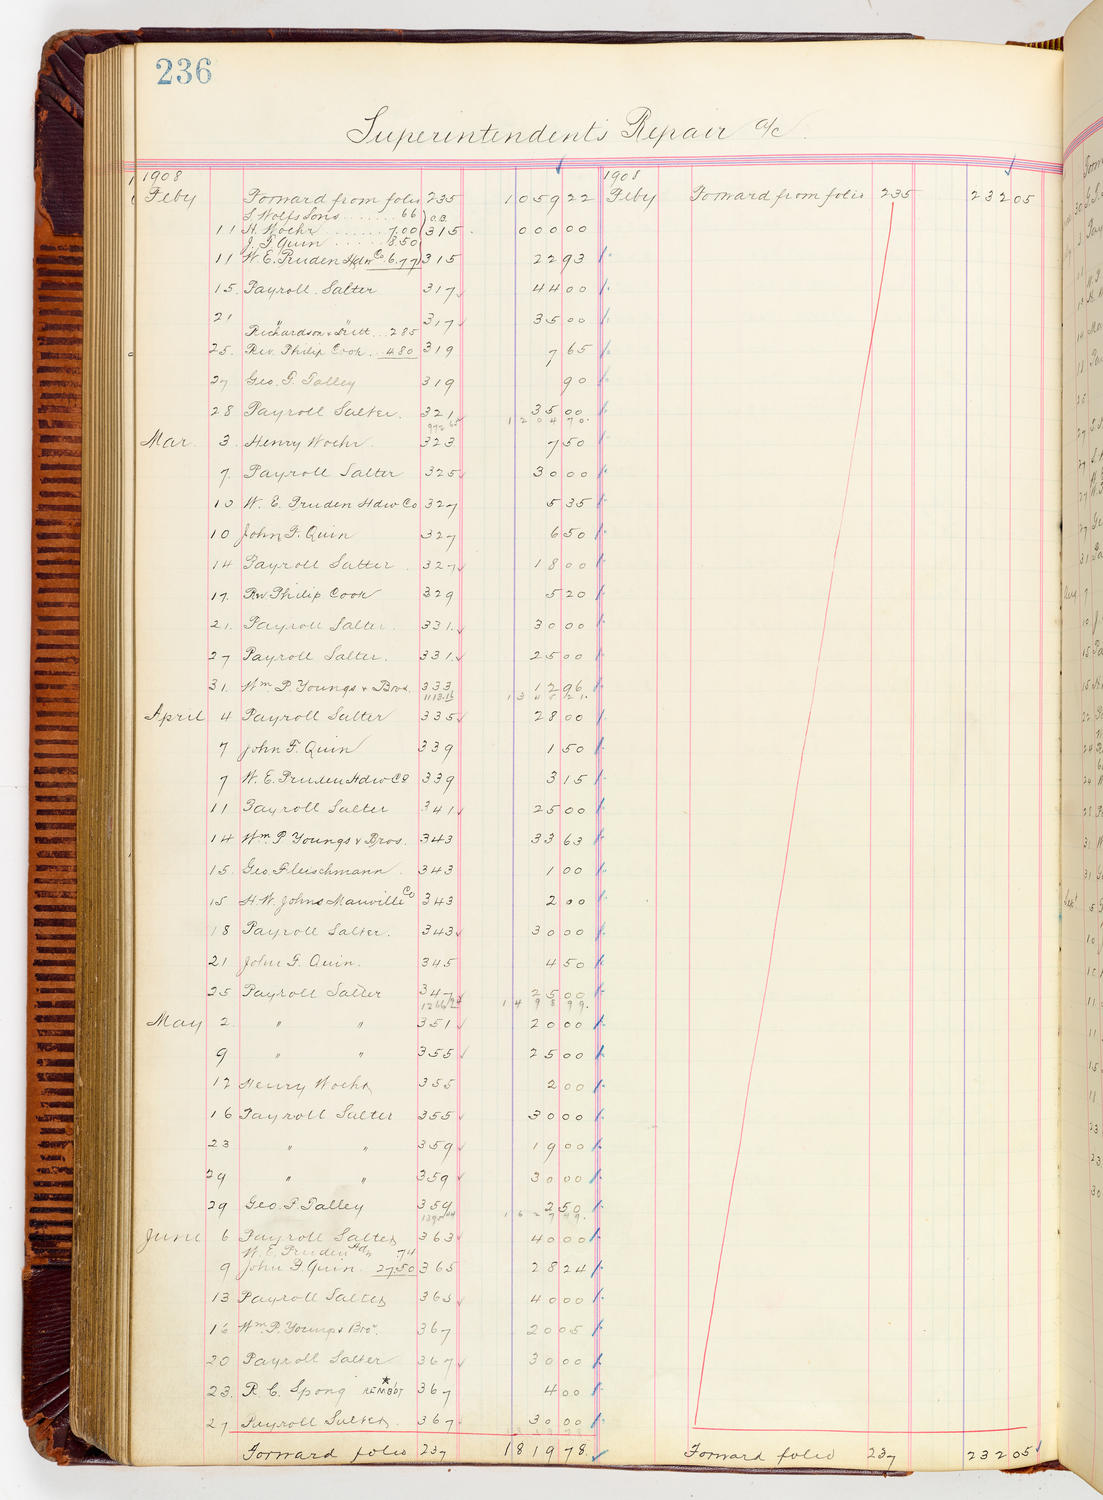 236
Superintendent's Repair a/c
1908
Feby Forward from folio 235 1059 22
S. Wolfs Sons 66
11 H. Woehr 7.00 315 000 00
J. F. Quin 8.50
11 W. E. Pruden Hdw Co 6.77 315 22 93
15. Payroll Salter 317 44 00
21 " " 317 35 00
Richardson & 2 85
25. Rev. Philip Cook 4 80 319 7 65
27 Geo. F. Talley 319 90
28 Payroll Salter. 321 35 00
1204 70.
Mar. 3. Henry Woehr. 323 7 50
7. Payroll Salter 325 30 00
10 W. E. Pruden Hdw Co 327 5 35
10 John F. Quin 327 6 50
14 Payroll Salter. 327 18 00
17. Rev Philip Cook 329 5 20
21. Payroll Salter. 331. 30 00
27 Payroll Salter. 331. 25 00
31. Wm P. Youngs & Bros. 333 12 96
1345 21.
April 4 Payroll Salter 335 28 00
7 John F. Quin 339 1 50
7 W. E. Pruden Hdw Co 339 3 15
11 Payroll Salter 341 25 00
14 Wm P Youngs & Bros. 343 33 63
15. Geo. Fleischmann. 343 1 00
15 H. W. Johns Manville Co 343 2 00
18 Payroll Salter. 343 30 00
21 John F. Quin. 345 4 50
25 Payroll Salter 347 25 00
1498 99.
May 2 " " 351 20 00
9 " " 355 25 00
12 Henry Woehr 355 2 00
16 Payroll Salter 355 30 00
23 " " 359 19 00
29 " " 359 30 00
29 Geo. F. Talley 359 2 50
1627 49.
June 6 Payroll Salter 363 40 00
W. E. Pruden Hdw .74
9 John F. Quin. 27.50 365 28 24
13 Payroll Salter 365 40 00
16 Wm. P. Youngs & Bro. 367 20 05
20 Payroll Salter 367 30 00
23. R. C. Spong REMBDT 367 4 00
27 Payroll Salter. 367 30 00
Forward folio 237 1819 78
1908
Feby Forward from folio 235 232 05
Forward folio 237 232 05